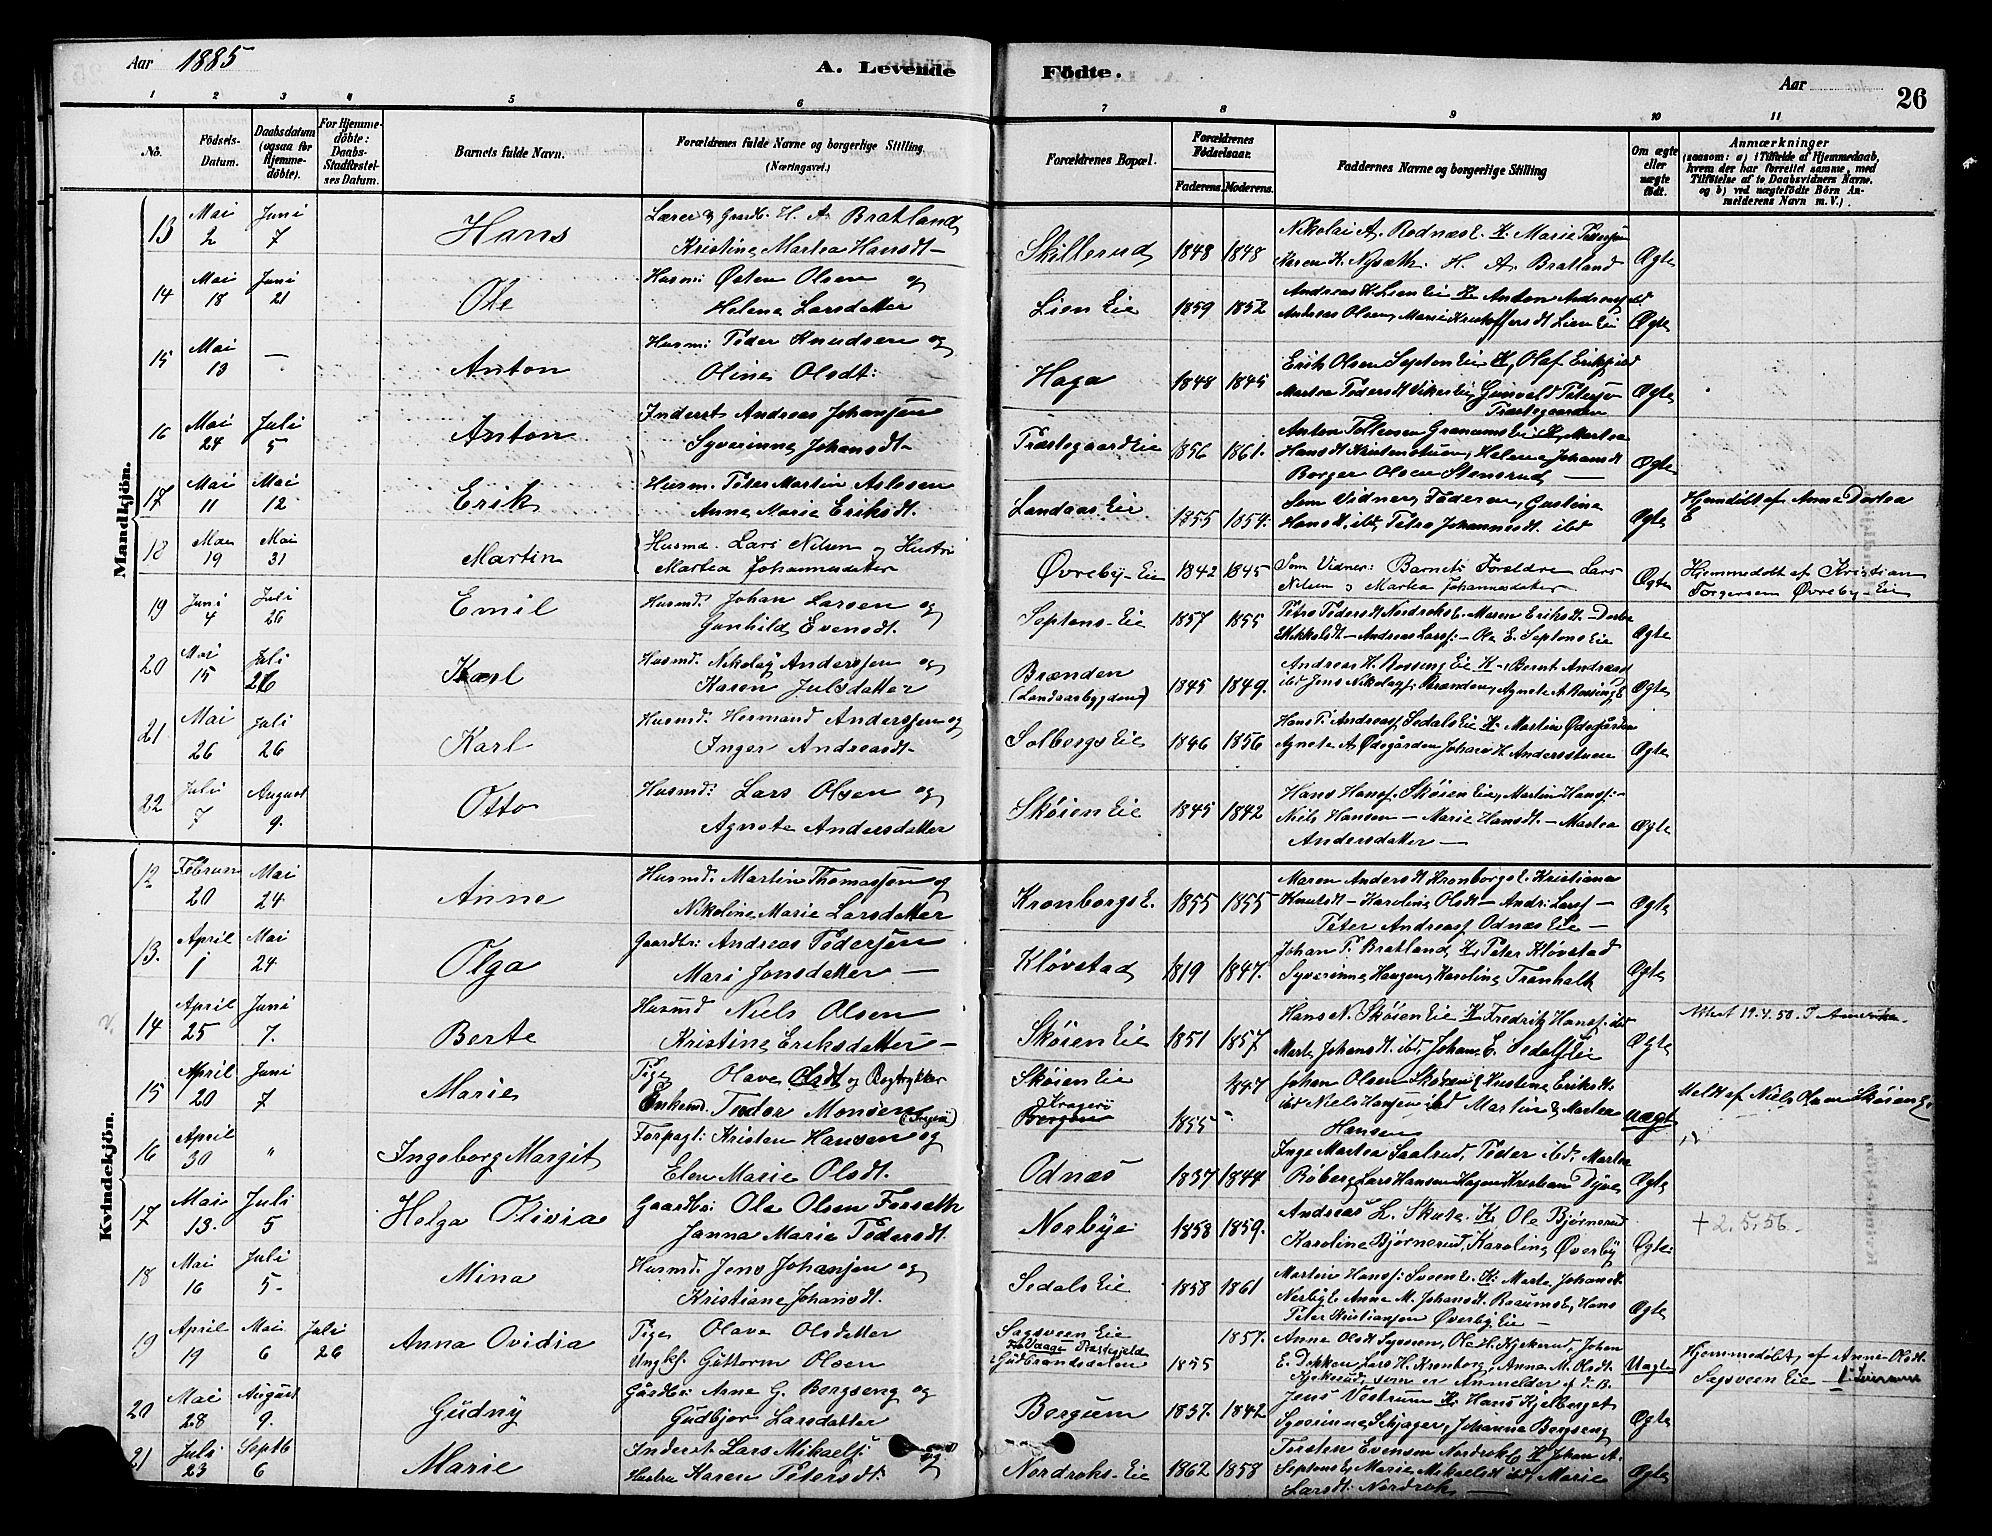 Aar 1885
A. Levende Fødte.
Aar
26
1 2 3 4 5 6 7 8 9 10 11
No.
Födsels-Datum.
Daabsdatum (ogsaa for Hjemme-döbte).
For Hjemme-döbte: Daabs-Stadfæstel-ses Datum.
Barnets fulde Navn.
Forældrenes fulde Navne og borgerlige Stilling. (Næringsvei.)
Forældrenes Bopæl.
Forældrenes Födselsaar.
Faderens. Moderens.
Faddernes Navne og borgerlige Stilling
Om ægte eller uægte födt.
Anmærkninger
(saasom: a) i Tilfælde af Hjemmedaab, hvem der har forrettet samme, med Tilföielse af to Daabsvidners Navne, og b) ved uægtefödte Börn An-melderens Navn m. V.)
Mandkjön.
13 Mai 2 Juni 7 Hans Lærer og Gaardb. H. A. Bratland Kristine Martea Hansdt- Skillerud 1848 1848 Nikolai A. Rodnæs E. K. Marie Maren K. Nysæth. H. A. Bratland Ægte
14 Mai 18 Juni 21 Ole Husm: Østen Olsen og Helene Larsdatter Lien Eie 1859 1852 Andreas H. Lien Eie K. Anton ibd Andreas Olsen, Marie Kristoffersdt Lien Eie Ægte
15 Mai 13 - Anton Husm: Peder Knudsen og Oline Olsdt: Haga 1848 1845 Erik Olsen Septon Eie K. Olaf ibd Martea Pedersdt Gunvald Ægte
16 Mai 24 Juli 5 Anton Inderst Andreas Johansen Syverinne Johansdt- Præstegaard Eie 1856 1861. Anton Tollevsen Granums Eie K. Martea Hansdt Helene Johansdt Borger Olsen Stensrud - Ægte
17 Mai 11 Mai 12 Erik Husm. Peter Martin Aslesen Anne Marie Eriksdt. Landaas Eie 1855 1854. Som Vidner, Faderen, Gustine Hansdt ibd, Petra Johannesdt. ibd Ægte Hjemdøbt af Anne Dortea E
18 Mai 19 Mai 31 Martin Husmd. Lars Nilsen og Hustru Martea Johannesdatter Øvreby-Eie 1842 1845 Som Vidner: Barnets Forældre Lars Nilsen og Martea Johannesdatter Ægte Hjemmedøbt af Kristian Torgersen Øvreby-Eie
19 Juni 4 Juli 26 Emil Husmd. Johan Larsen og Gunhild Evensdt. Septons-Eie 1857 1855 Petra Pedersdt Nordroks E. Maren Eriksdt. Andreas Larss: - Ole E. Septons Eie Ægte
20 Mai 15 Juli 26 Karl Husmd. Nikolay Anderssen og Karen Julsdatter Brænden (Landaasbygden) 1845 1849. Andreas H. Rossing Eie K. Bernt ibd Jens Brænden, Agnete A Rossing E Ægte
21 Mai 26 Juli 26 Karl Husmd. Hermand Anderssen og Inger Andreasdt- Solbergs Eie 1846 1856 Hans P. Andreass Sedals Eie K. Martin Ødegården Agnete A. Ødegården Johan H. Andersstuen Ægte
22 Juli 7 August 9. Otto Husmd: Lars Olsen og Agnete Andersdatter Skøien Eie 1845 1842 Hans Hanss: Skøien Eie, Martin Hanss:- Niels Hansen - Marie Hansdt - Martea Andersdatter - Ægte
Kvindekjön.
12 Februar 20 Mai 24 Anne Husmd. Martin Thomassen og Nikoline Marie Larsdatter Kronborgs E. 1855 1855 Maren Andersdt Kronborgs E. Kristiana Knutsdt - Karoline Olsdt - Andr. Larss - Peter Andreass Odnæs Eie - Ægte
13. April 1 Mai 24 Olga Gaardbr: Andreas Pedersen Mari Jonsdatter - Kløvstad 1819 1847. Johan P. Bratland, K. Peter Kløvstad Syverinne Haugen, Karoline Ægte
14 April 25 Juni 7. Berte Husmd Niels Olsen Kristine Eriksdatter - Skøien Eie 1851 1857 Hans N. Skøien Eie K Fredrik Hanss. ibd Marte Johansdt. ibd, Johan E. Sedals Eie Ægte Attest 19.4.50. T. Amerika.
15 April 20 Juni 7 Marie Pige Olava Olsdt og Enkem. Tædor Monsen Skøien Eie Kragerø Bergen 1855 1847 Johan Olsen Skøien E Kristine Eriksdt. ibd Niels Hansen ibd Martin & Martea Hansen Uægte Meldt af Niels Olsen Skøien E.
16 April 30 " Ingeborg Margit Forpagt: Kristen Hansen og Elen Marie Olsdt. Odnæs 1837 1844 Inge Martea Saalrud, Peder ibd. Martea Røberg Lars Hansen Hagen Kristian Ægte
17 Mai 13. Juli 5 Helga Olivia Gaardbr: Ole Olsen Forseth Janna Marie Pedersdt. Norbye 1858 1859. Andreas L. Skute. K. Ole Bjørnerud Karoline Bjørnerud, Karoline Øverby Ægte. + 2.5.56.-
18 Mai 16 Juli 5 Mina Husmd. Jens Johansen og Kristiane Johansdt. Sedals Eie 1858 1861 Martin Hanss: Sveen E. K. Marte Johansdt. Nerby E Anne M. Johansdt. Raaums E, Hans Peter Kristiansen Øverby Eie - Ægte
19 April 19 Mai 6 Juli 26 Anna Ovidia Pige, Olava Olsdatter Ungkf. Guttorm Olsen Sagsveen Eie Vaage Præstegjeld Gudbrandsdalen 1855 1857. Anne Olsdt Ole H. Kjekerud, Johan E. Dokken, Lars H. Kronborg, Anna M. Olsdt. Kjekerud, som er Anmelder af d. B. Uægte Hjemmedøbt, af Anne Olsdt. Sagsveen Eie -
20 Mai 28 August 9. Gudny Gårdbr: Arne G. Bergseng og Gudbjør Larsdatter Bergum 1837. 1842 Jens Vestrum K. Hans Kjelberget Syverinne Johanna Bergseng Ægte
21 Juli 23 Septb 6 Marie Inderst Lars Mikaels: og Hustru Karen Petersdt: Nordroks-Eie 1862 1858 Torsten Evensen Nordrok E K Johan A. Septons E, Marie Mikaelsdt ibd, Marie Larsdt: Nordrok - Ægte